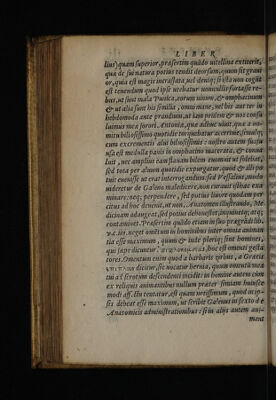 LIBER
lius) quam superior, præsertim quãdo vitellina extiterit,
quæ de sui natura potius tendit deorsum, quum sit gravi
or, quia est magis incrassata, nec denique si ista non cogit
est tenendum quod ipse utebatur nonnullis fortasse re-
bus, ut sunt mala Punica, eorum vinum, & omphacinum
& ut alia sunt his similia, omni mane, vel bis aut ter in
hebdomoda ante prandeat, ut iam pridem & nos consu
luimus meæ sorori, Antonia, quæ adhuc vivit, quæ a vo-
mitu biliosissimo quotidie torquebatur acerrime, simulq;
cum excrementis alui biliosissimis: nostro autem suasu
usa est medulla panis in omphacino macerata, & conua
luit, nec amplius eam flauam bilem euomuit ut solebat,
sed tota per aluum quotidie expurgatur. quod & illi po-
tuit euenisse ut erat interrogandus, sed Vessalius, modo
uideretur de Galeno maledicere, non curauit isthæc exa
minare, neq; perpendere, sed potius liuore quodam per
citus ad hoc deuenit, ut non, Anatomen illustrando, Me
dicinam adaugeat, sed potius dehonestet, inquietet, atq;
contaminet. Præsertim quãdo etiam in suo prædicto lib.
v. c. iiii. neget omẽtum in hominibus inter omnia animan
tia esse maximum, quum & inde pleriq; sint homines,
qui iam dicuntur, hoc est omenti gesta
tores. Omentum enim quod a barbaris zirbus, a Græcis
dicitur, sic uocatur hernia, quum omenti nimia
uis ad scrotum descendenti incidit: in homine autem eam
ex reliquis animantibus nullum præter simiam huiusce-
modi aff. ctu tentatur, est quam notissimum, quod in ip-
sis debeat esse maximum, ut scribit Galenus in sexto de
Anatomicis administrationibus: si in alijs autem ani-
mant